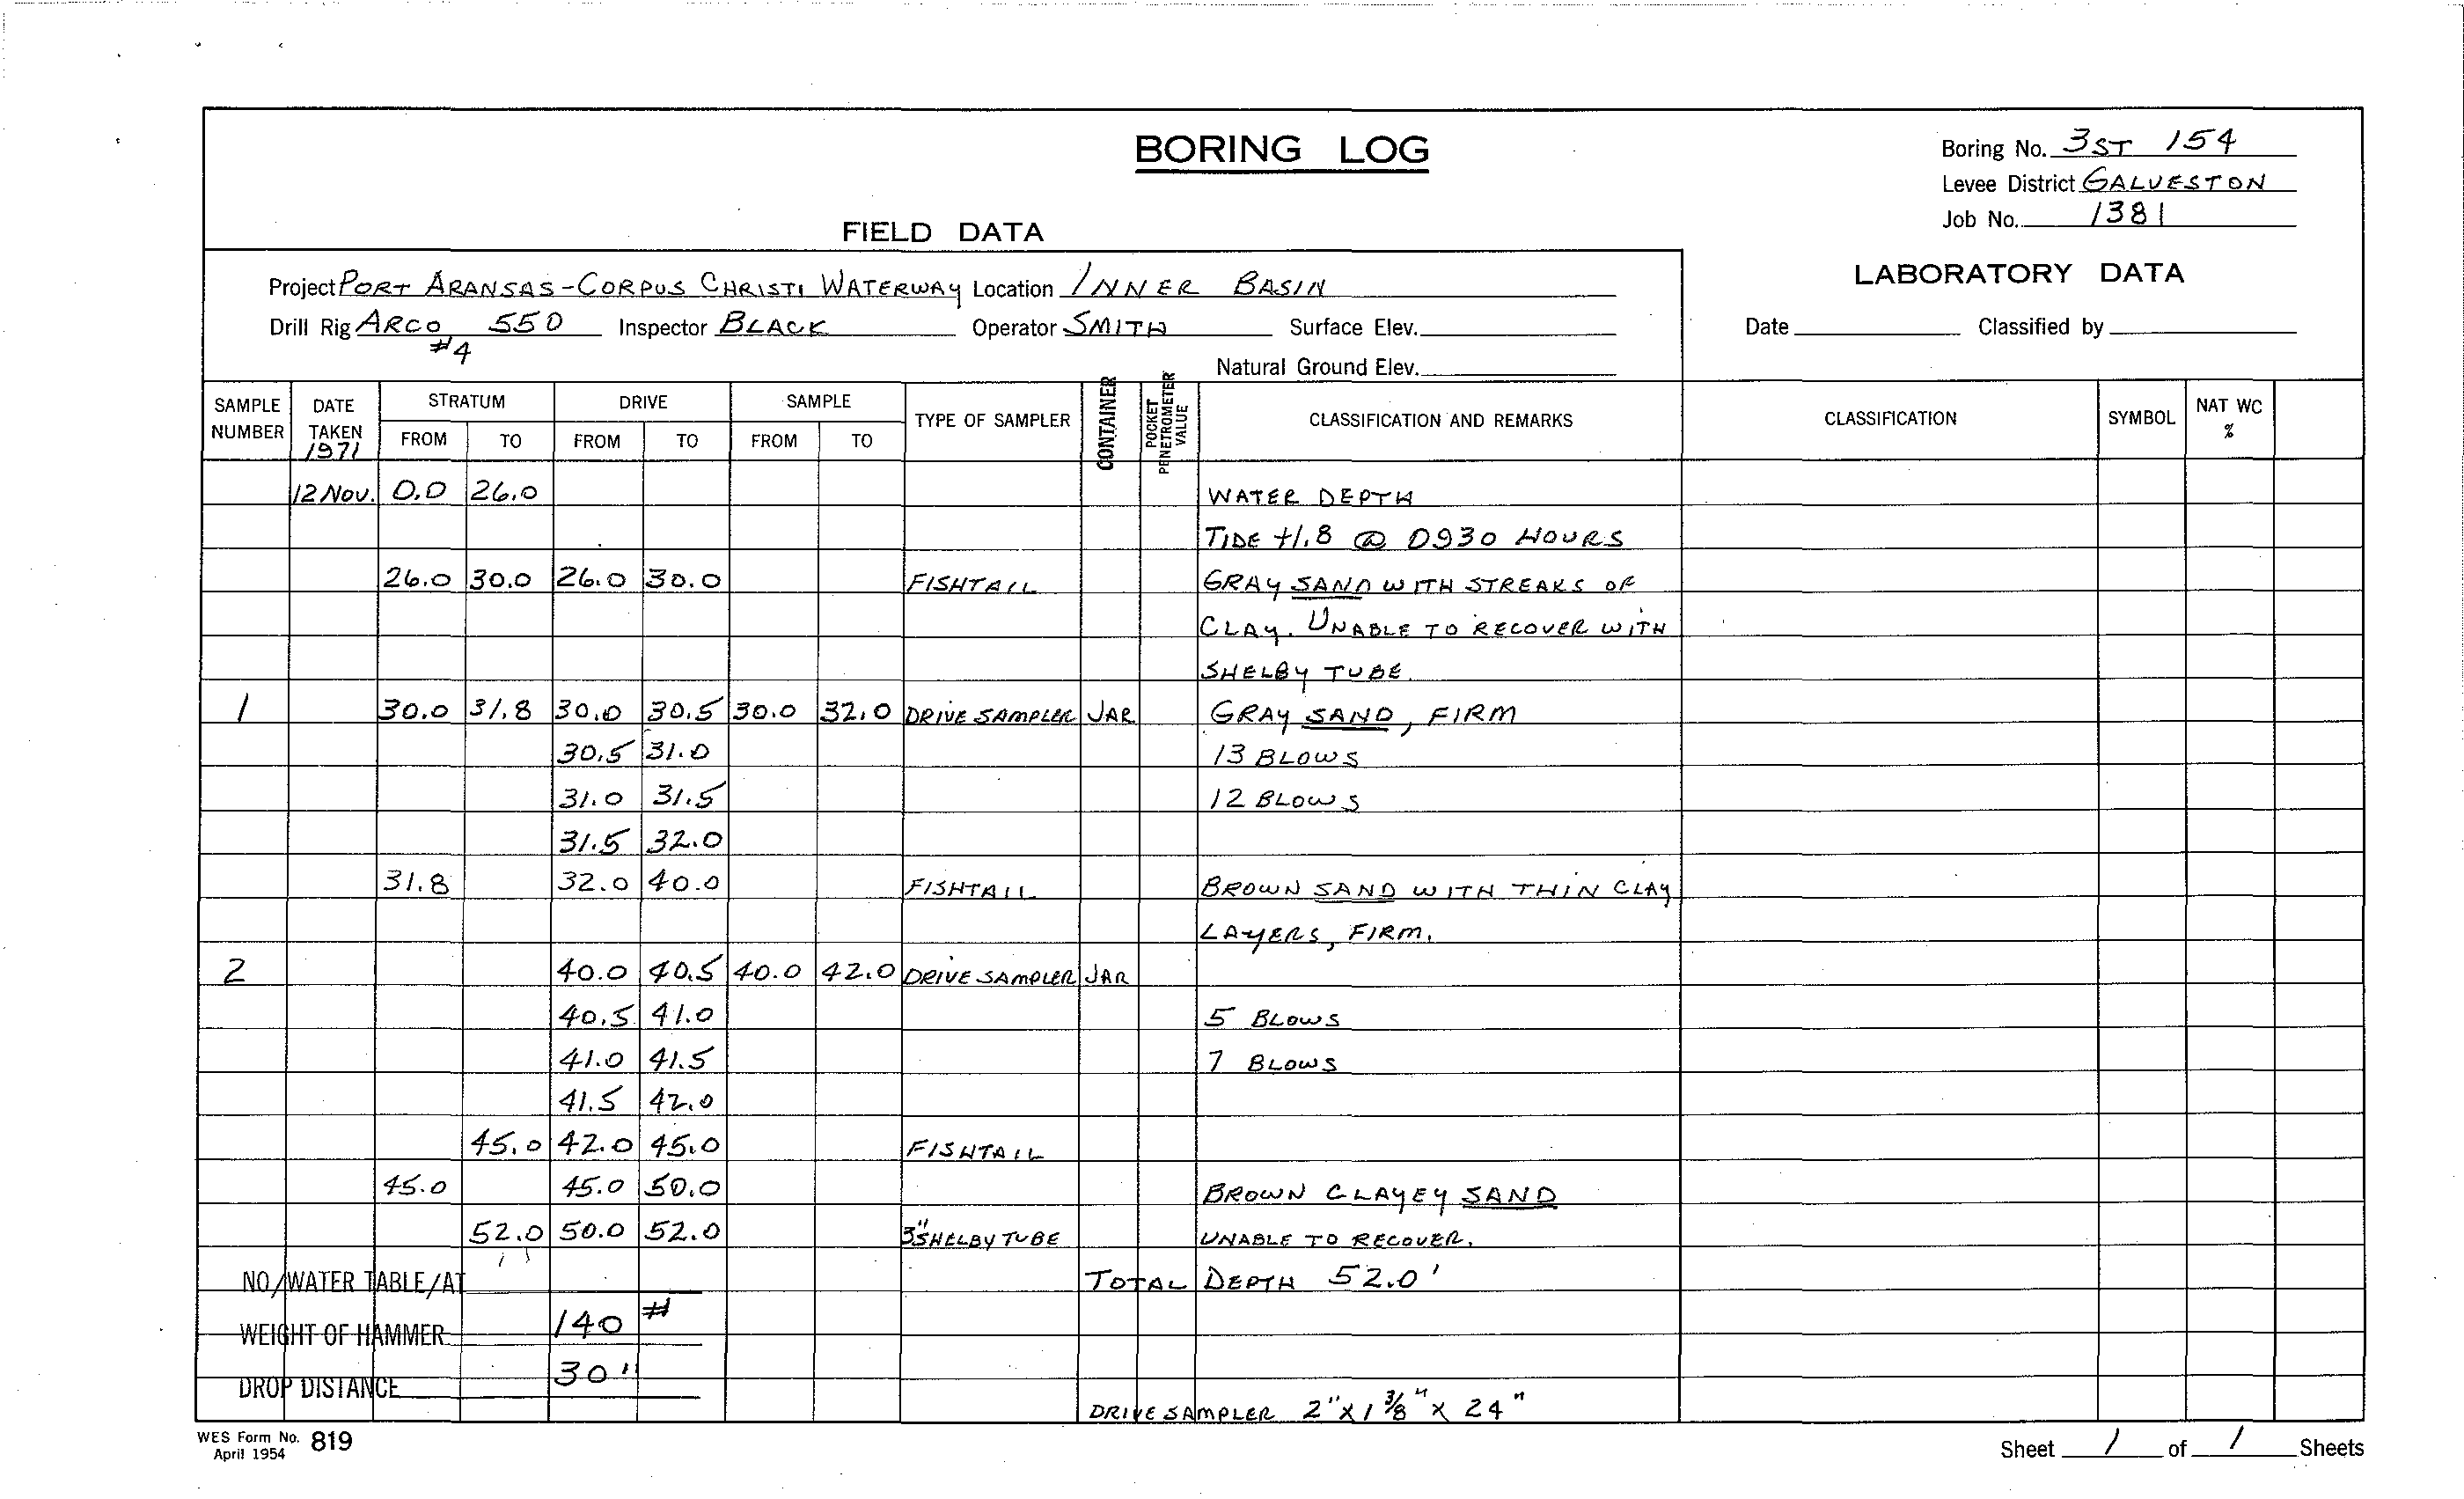 BORING LOG
Boring No. 3ST 154
Levee District GALVESTON
Job No. 1381
FIELD DATA
LABORATORY DATA
Project PORT ARANSAS-CORPUS CHRISTI WATERWAY Location INNER BASIN
Drill Rig ARCO 550 Inspector BLACK Operator SMITH Surface Elev.
Date Classified by
#4
Natural Ground Elev.
SAMPLE NUMBER DATE TAKEN 1971 STRATUM FROM TO DRIVE FROM TO SAMPLE FROM TO TYPE OF SAMPLER CONTAINER POCKET PENETROMETER VALUE CLASSIFICATION AND REMARKS CLASSIFICATION SYMBOL NAT WC %
12 NOV. 0.0 26.0 WATER DEPTH
TIDE +1.8 @ 0930 HOURS
26.0 30.0 26.0 30.0 FISHTAIL GRAY SAND WITH STREAKS OF
CLAY. UNABLE TO RECOVER WITH
SHELBY TUBE.
1 30.0 31.8 30.0 30.5 30.0 32.0 DRIVE SAMPLER JAR GRAY SAND, FIRM
30.5 31.0 13 BLOWS
31.0 31.5 12 BLOWS
31.5 32.0
31.8 32.0 40.0 FISHTAIL BROWN SAND WITH THIN CLAY
LAYERS, FIRM.
2 40.0 40.5 40.0 42.0 DRIVE SAMPLER JAR
40.5 41.0 5 BLOWS
41.0 41.5 7 BLOWS
41.5 42.0
45.0 42.0 45.0 FISHTAIL
45.0 45.0 50.0 BROWN CLAYEY SAND
52.0 50.0 52.0 3" SHELBY TUBE UNABLE TO RECOVER.
NO/WATER TABLE/AT TOTAL DEPTH 52.0'
WEIGHT OF HAMMER 140 #
DROP DISTANCE 30"
DRIVE SAMPLER 2" X 1 3/8" X 24"
WES Form No. 819
April 1954
Sheet 1 of 1 Sheets